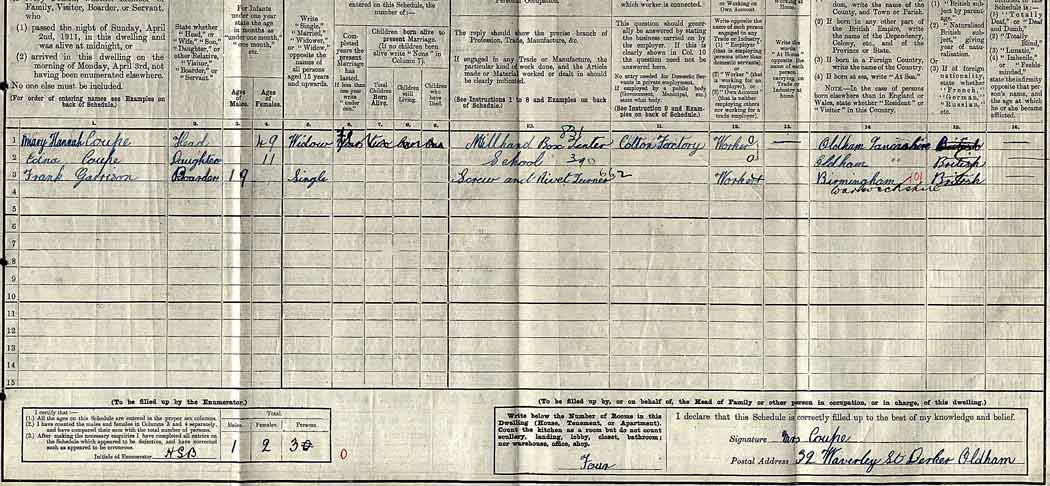 Family, Visitor, Boarder, or Servant,
who
(1) passed the night of Sunday, April
2nd, 1911, in this dwelling and
was alive at midnight, or
(2) arrived in this dwelling on the
morning of Monday, April 3rd, not
having been enumerated elsewhere.
No one else must be included.
(For order of entering names see Examples on
back of Schedule.)
State whether
"Head," or
"Wife," "Son,"
"Daughter," or
other Relative,
"Visitor,"
"Boarder," or
"Servant."
For Infants
under one year
state the age
in months as
"under one
month," "one month,"
etc.
Ages
of
Males.
Ages
of
Females.
Write
"Single,"
"Married,"
"Widower,"
or "Widow,"
opposite the
names of
all persons
aged 15 years
and upwards.
entered on this Schedule, the
number of:—
Completed
years the
present
Marriage
has
lasted.
If less than
one year
write
"under
one."
Children born alive to
present Marriage.
(If no children
born alive write "None" in
Column 7).
Total
Children
Born
Alive.
Children
still
Living.
Children
who
have
Died.
Personal Occupation.
The reply should show the precise branch of
Profession, Trade, Manufacture, &c.
If engaged in any Trade or Manufacture, the
particular kind of work done, and the Article
made or Material worked or dealt in should
be clearly indicated.
(See Instructions 1 to 8 and Examples on
back of Schedule.)
which worker is connected.
This question should gener-
ally be answered by stating
the business carried on by
the employer. If this is
clearly shown in Col. 10
the question need not be
answered here.
No entry needed for Domestic Ser-
vants in private employment.
If employed by a public body
(Government, Municipal, etc.)
state what body.
(See Instruction 9 and Exam-
ples on back of Schedule.)
or Working on
Own Account
Write opposite
the name of each
person engaged
in any Trade or
Industry
(1) "Employer"
(that is employing
persons other than
domestic servants),
or
(2) "Worker" (that
is working for an
employer), or
(3) "Own Account"
(that is neither
employing others
nor working for a
trade employer).
dom, write the name of the
County, and Town or Parish.
(2) If born in any other part of
the British Empire, write
the name of the Dependency,
Colony, etc., and of the
Province or State.
(3) If born in a Foreign Country,
write the name of the Country.
(4) If born at sea, write "At Sea."
NOTE.—In the case of persons
born elsewhere than in England or
Wales, state whether "Resident" or
"Visitor" in this Country.
1. 2. 3. 4. 5. 6. 7. 8. 9. 10. 11. 12. 13. 14. 15. 16.
1 Mary Hannah Coupe Head 49 Widow Two One One Cotton Factory Worker — Oldham Lancashire British
2 Edna Coupe Daughter 11 School 390 Oldham " British
3 Frank Garrison Boarder 19 Single Screw and Rivet Turner 662 Worker Birmingham British
Warwickshire
4
5
6
7
8
9
10
11
12
13
14
15
(To be filled up by the Enumerator.)
I certify that:—
(1.) All the ages on this Schedule are entered in the proper sex columns.
(2.) I have counted the males and females in Columns 3 and 4 separately,
and have compared their sum with the total number of persons.
(3.) After making the necessary enquiries I have completed all entries on
the Schedule which appeared to be defective, and have corrected
such as appeared to be erroneous.
Initials of Enumerator HSB
Total.
Males. Females. Persons.
1 2 3
0
(To be filled up by, or on behalf of, the Head of Family or other person in occupation, or in charge, of this dwelling.)
Write below the Number of Rooms in this
Dwelling (House, Tenement, or Apartment).
Count the kitchen as a room but do not count
scullery, landing, lobby, closet, bathroom;
nor warehouse, office, shop.
Four
I declare that this Schedule is correctly filled up to the best of my knowledge and belief.
Signature Mrs Coupe
Postal Address 39 Waverley St Derker Oldham